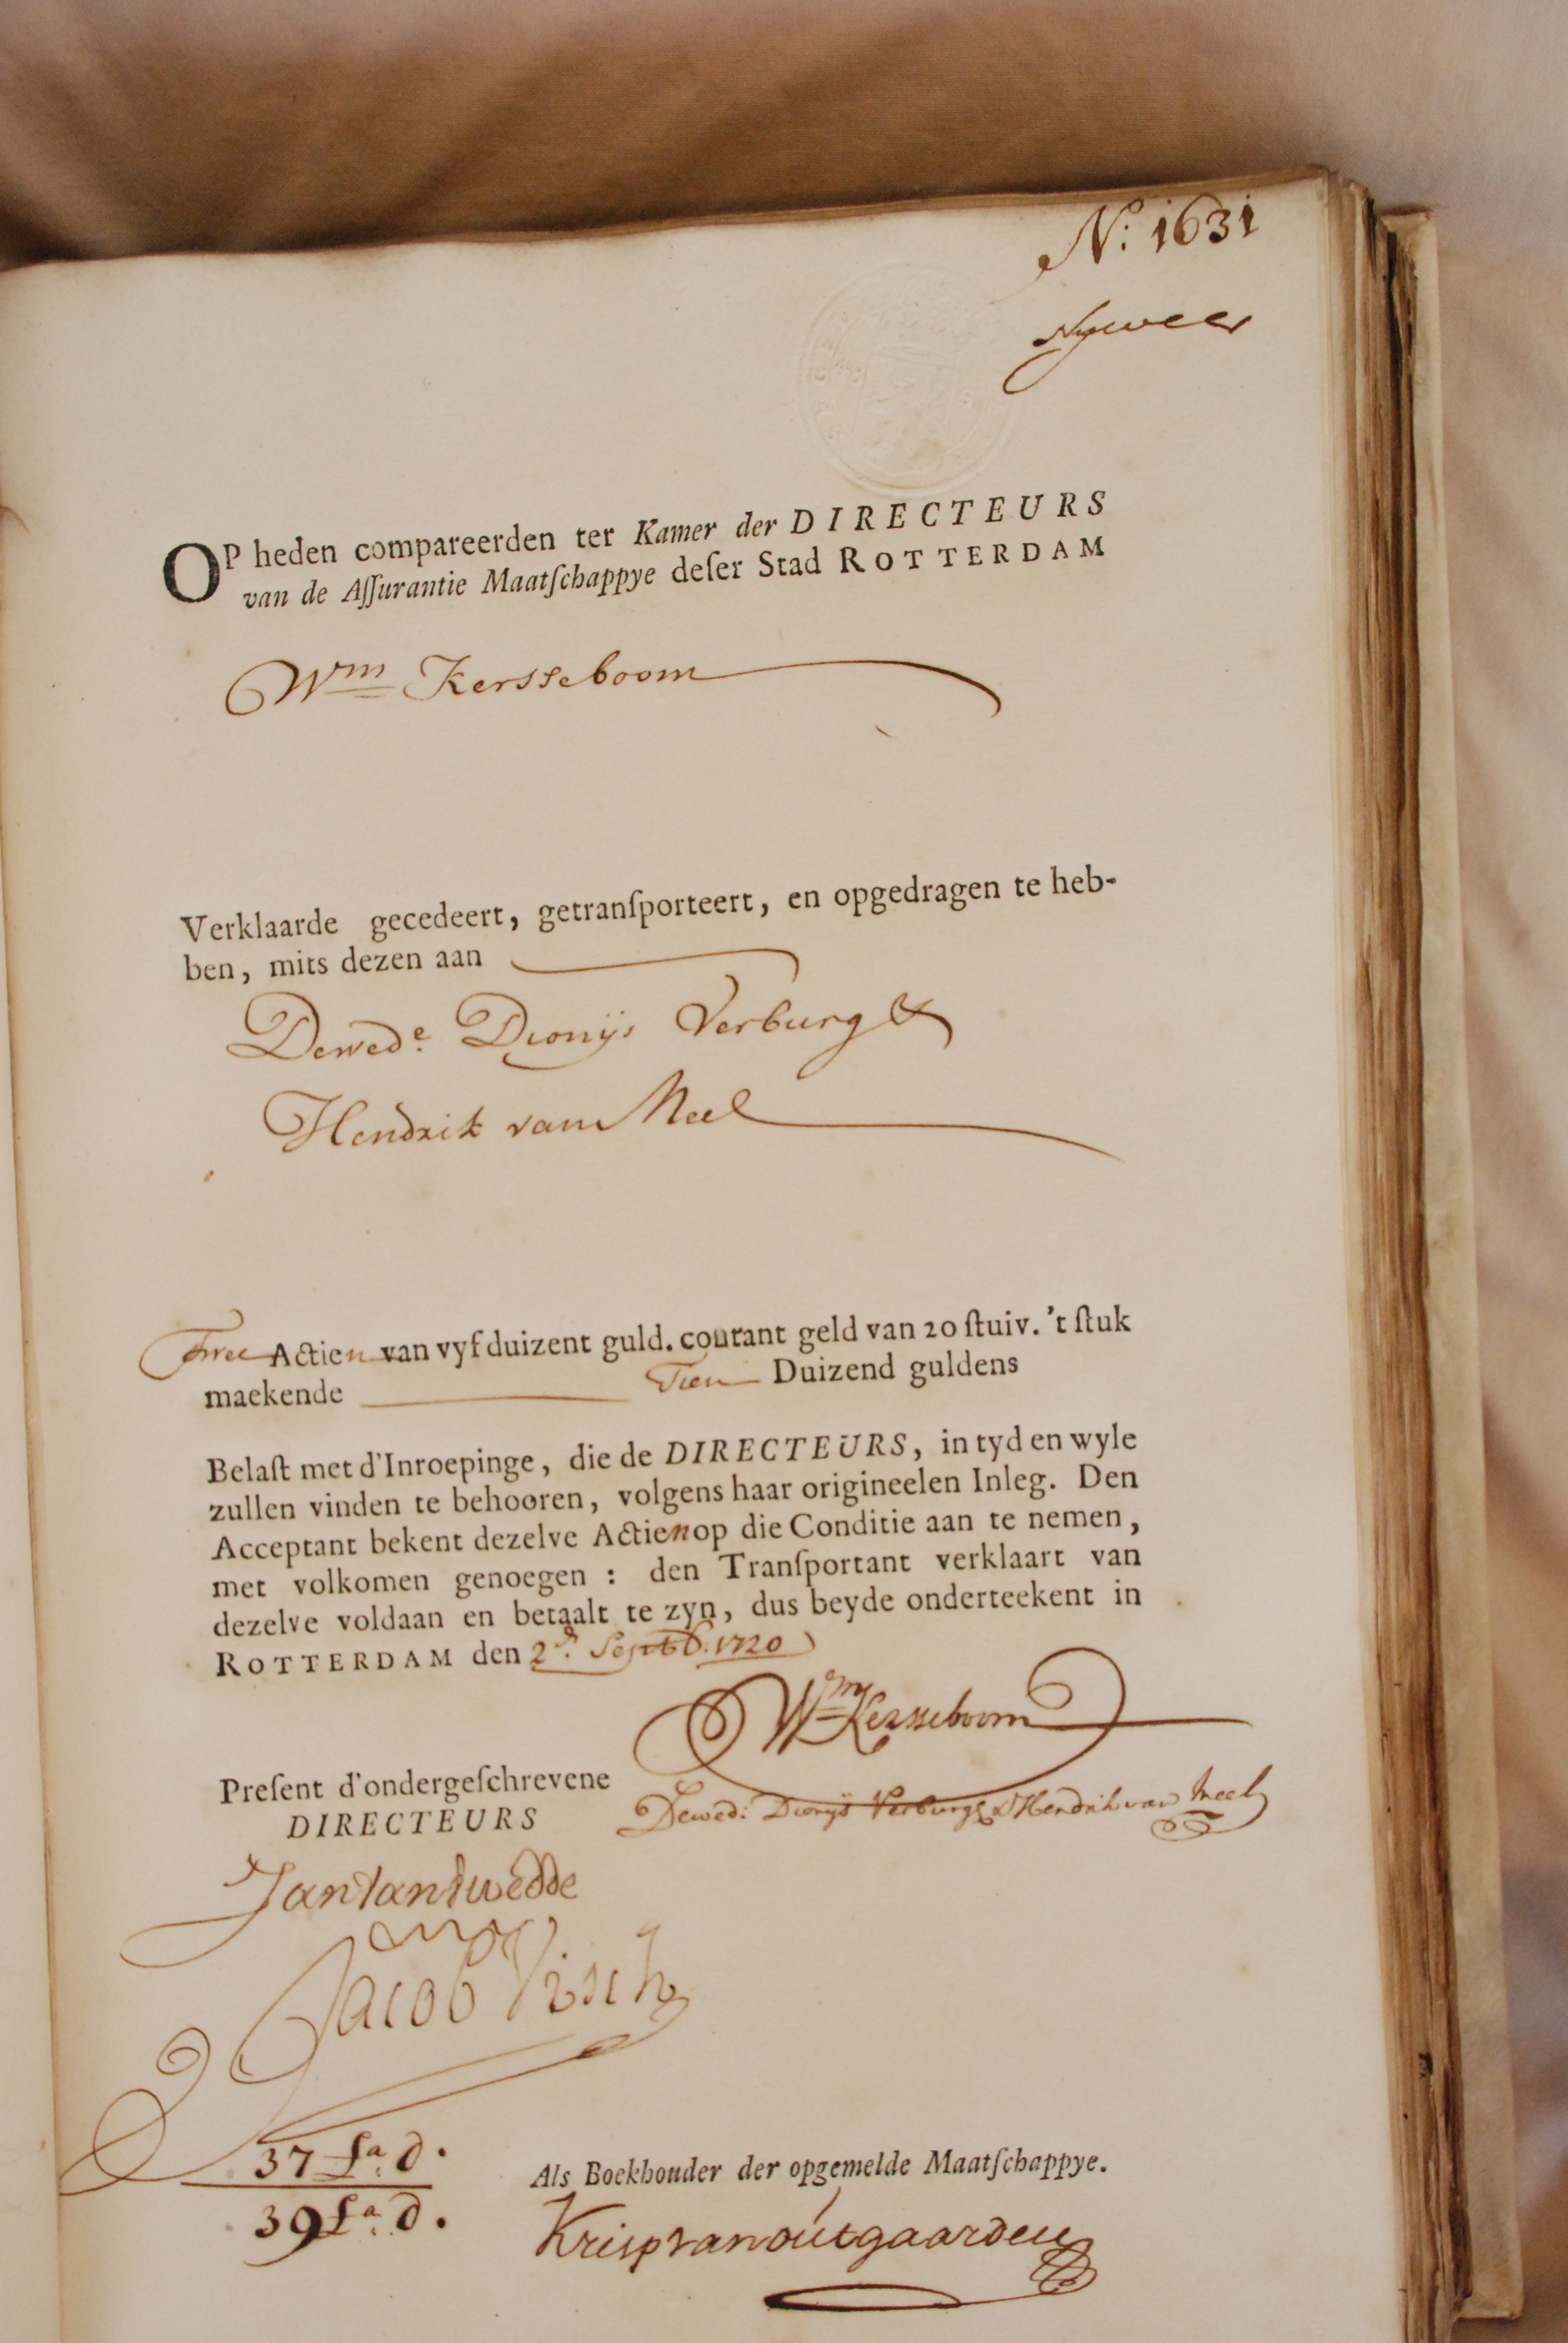 N.º 1631
OP heden compareerden ter Kamer der DIRECTEURS
van de Aſſurantie Maatſchappye deſer Stad ROTTERDAM
Wm Kersseboom
Verklaarde gecedeert, getranſporteert, en opgedragen te heb-
ben, mits dezen aan
De wede. Dionijs Verburg &
Hendrik van Meel
Twee Actien van vyf duizent guld. courant geld van 20 ſtuiv. 't ſtuk
maekende Tien Duizend guldens
Belaſt met d'Inroepinge, die de DIRECTEURS, in tyd en wyle
zullen vinden te behooren, volgens haar origineelen Inleg. Den
Acceptant bekent dezelve Actien op die Conditie aan te nemen,
met volkomen genoegen : den Tranſportant verklaart van
dezelve voldaan en betaalt te zyn, dus beyde onderteekent in
ROTTERDAM den 2d. Septb. 1720
Wm Kersseboom
Preſent d'ondergeſchrevene
DIRECTEURS
De wed: Dionijs Verburg & Hendrik van Meel
Jacob Visch
37 fa. d.
39 fa. d.
Als Boekhouder der opgemelde Maatſchappye.
Kris van outgaarden